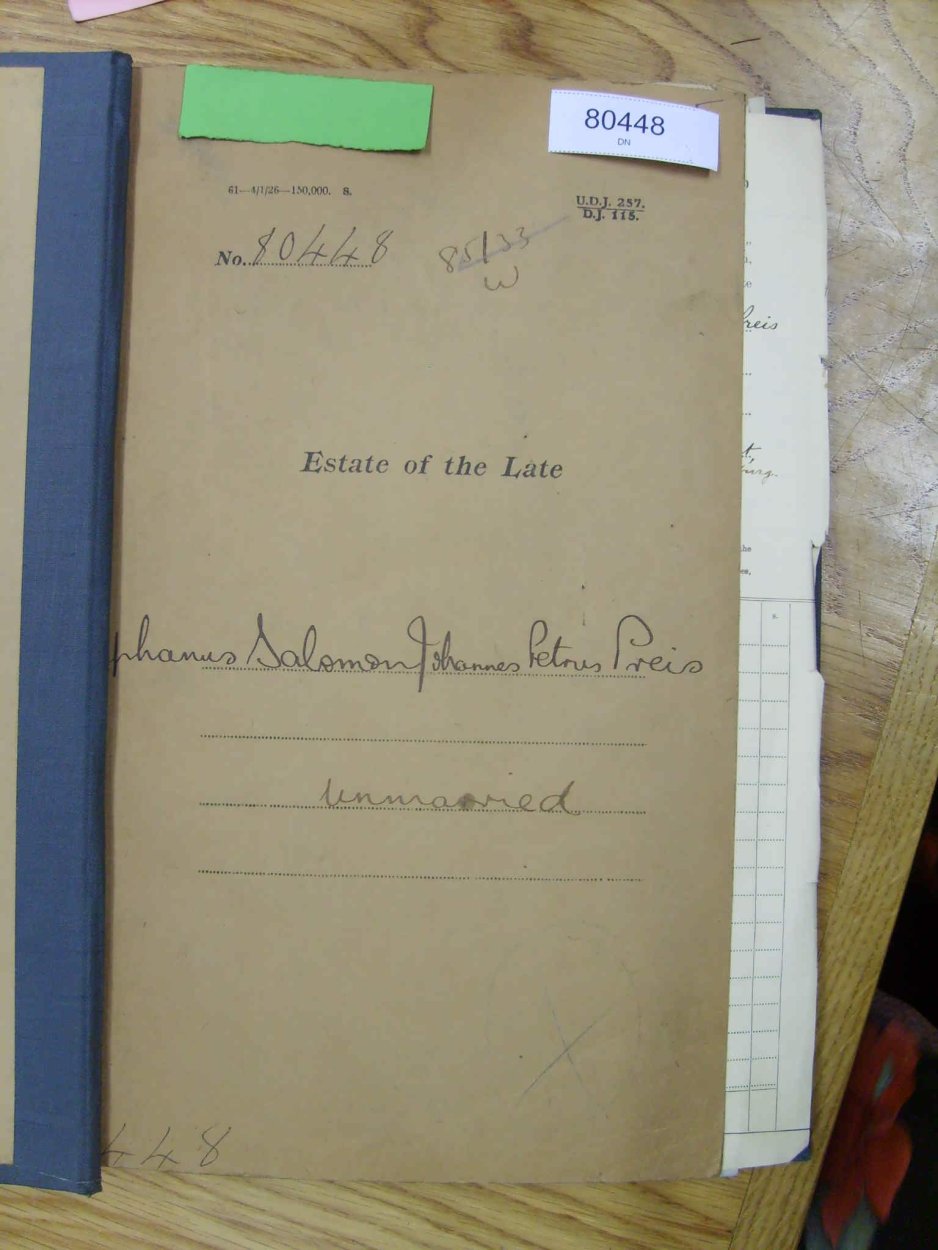 80448
DN
61—4/1/26—150,000. S.
U.D.J. 257.
D.J. 115.
No. 80448
85/33
W
Estate of the Late
phanus Salomon Johannes Petrus Preis
unmarried
448
reis
he
es,
s.